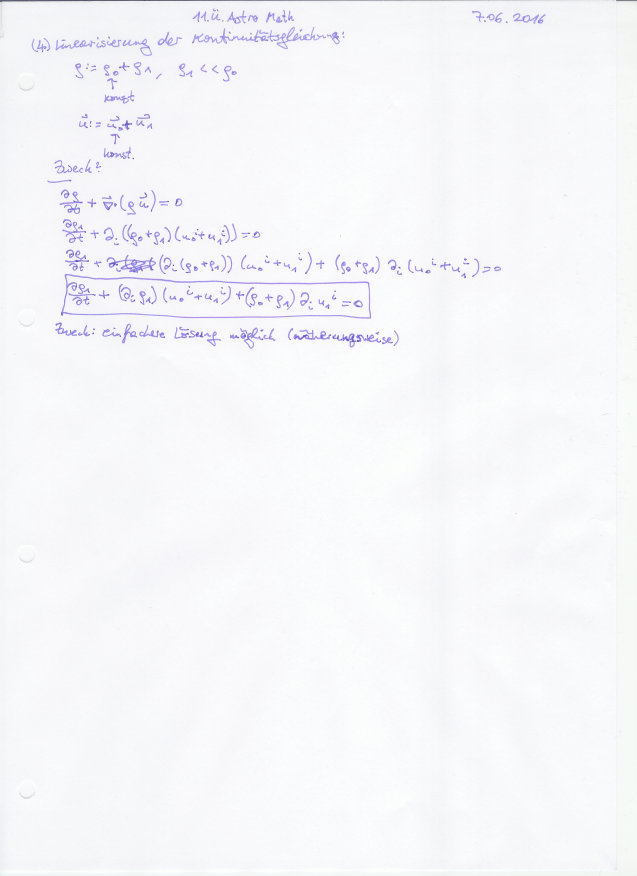 11.Ü. Astro Math 7.06.2016
(4) Linearisierung der Kontinuitätsgleichung:
ρ := ρ₀ + ρ₁, ρ₁ << ρ₀
↑
konst
u⃗ := u⃗₀ + u⃗₁
↑
konst.
Zweck?
∂ρ/∂t + ∇⃗·(ρ u⃗) = 0
∂ρ₁/∂t + ∂ᵢ((ρ₀+ρ₁)(u₀ⁱ+u₁ⁱ)) = 0
∂ρ₁/∂t + (∂ᵢ(ρ₀+ρ₁)) (u₀ⁱ+u₁ⁱ) + (ρ₀+ρ₁) ∂ᵢ(u₀ⁱ+u₁ⁱ) = 0
∂ρ₁/∂t + (∂ᵢρ₁)(u₀ⁱ+u₁ⁱ) + (ρ₀+ρ₁) ∂ᵢ u₁ⁱ = 0
Zweck: einfachere Lösung möglich (näherungsweise)